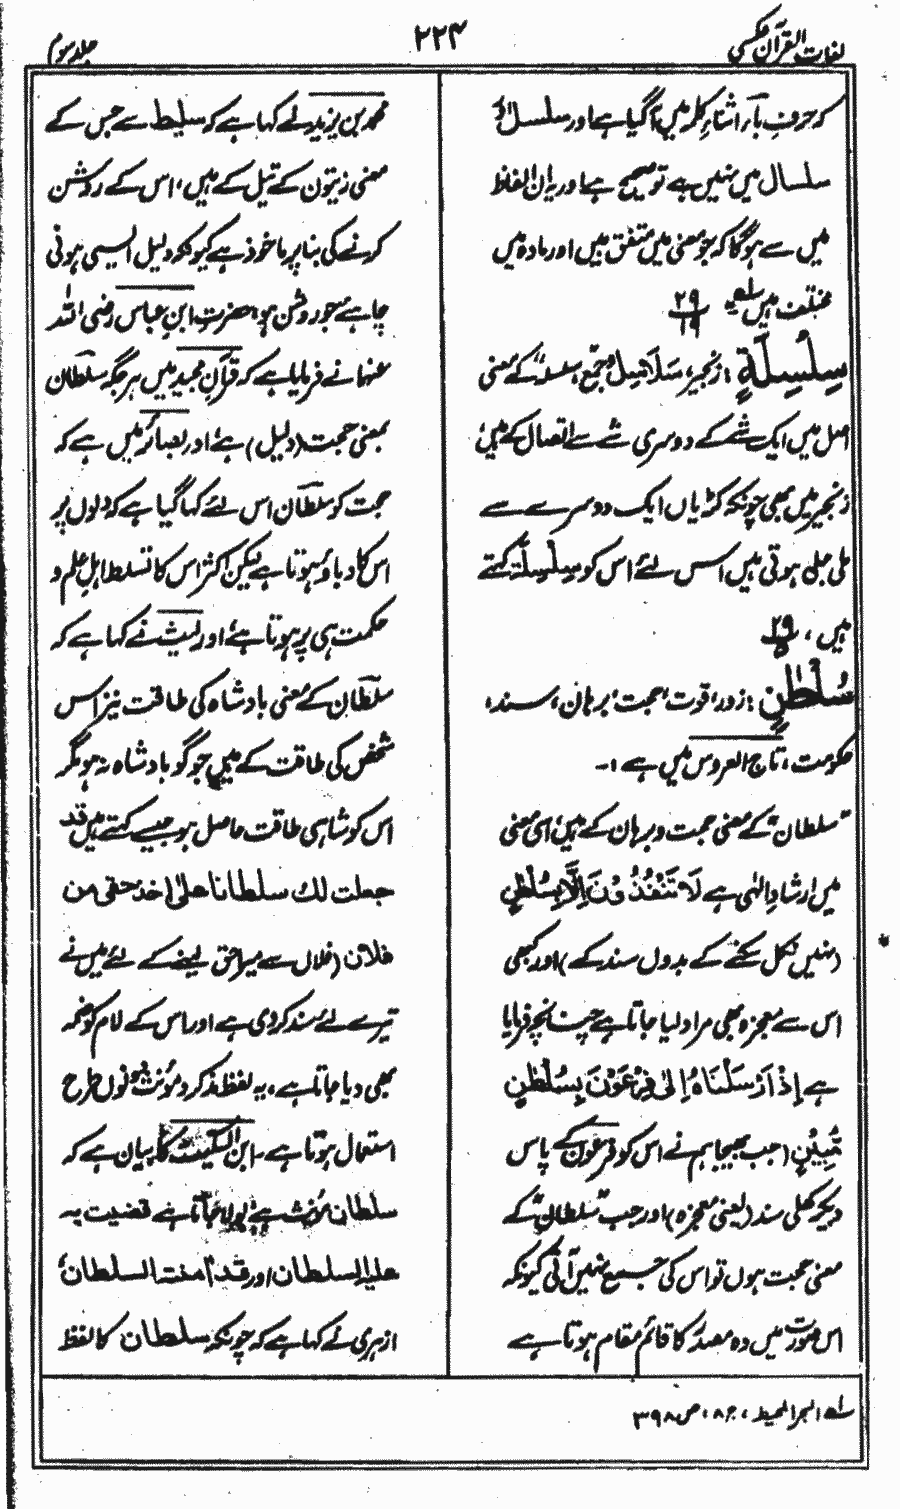 لغات القرآن عکسی
۲۲۴
جلد سوم
کہ حرفِ باء اثناءِ کلمہ میں آ گیا ہے اور سلسال
سلسال میں نہیں ہے تو صحیح ہے اور یہ ان الفاظ
میں سے ہو گا کہ جو معنی میں متفق ہیں اور مادہ میں
مختلف ہیں ۲۹ ۱۹
سِلْسِلَةٍ : زنجیر، سَلَاسِلُ جمع، سلسلہ کے معنی
اصل میں ایک شے کے دوسری شے سے اتصال کے ہیں،
زنجیر میں بھی چونکہ کڑیاں ایک دوسرے سے
ملی جلی ہوتی ہیں اس لئے اس کو سِلْسِلَة کہتے
ہیں، ۲۹ ۵
سُلْطٰنٍ : زور، قوت، حجت، برہان، سند،
حکومت، تاج العروس میں ہے :۔
"سلطان" کے معنی حجت و برہان کے ہیں، اسی معنی
میں ارشادِ الٰہی ہے لَا تَنْفُذُوْنَ اِلَّا بِسُلْطٰنٍ
(نہیں نکل سکنے کے بدوں سند کے) اور کبھی
اس سے معجزہ بھی مراد لیا جاتا ہے چنانچہ فرمایا
ہے اِذْ اَرْسَلْنَاهُ اِلٰی فِرْعَوْنَ بِسُلْطٰنٍ
مُّبِیْنٍ (جب بھیجا ہم نے اس کو فرعون کے پاس
دیکر کھلی سند (یعنی معجزہ) اور جب "سلطان" کے
معنی حجت ہوں تو اس کی جمع نہیں آتی کیونکہ
اس صورت میں وہ مصدر کا قائم مقام ہوتا ہے
محمد بن یزید نے کہا ہے کہ سلیط سے جس کے
معنی زیتون کے تیل کے ہیں، اس کے روشن
کرنے کی بنا پر ماخوذ ہے کیونکہ دلیل ایسی ہونی
چاہئے جو روشن ہو، حضرت ابن عباس رضی اللہ
عنہما نے فرمایا ہے کہ قرآن مجید میں ہر جگہ سلطان
بمعنی حجت (دلیل) ہے، اور بصائر میں ہے کہ
حجت کو سلطان اس لئے کہا گیا ہے کہ دلوں پر
اس کا دباؤ ہوتا ہے لیکن اکثر اس کا تسلط اہل علم و
حکمت ہی پر ہوتا ہے، اور لیث نے کہا ہے کہ
سلطان کے معنی بادشاہ کی طاقت نیز اس
شخص کی طاقت کے ہیں جو گو بادشاہ نہ ہو مگر
اس کو شاہی طاقت حاصل ہو جیسے کہتے ہیں قد
جعلت لك سلطانا علیٰ اخذ حقی من
فلان (فلاں سے میرا حق لینے کے لئے میں نے
تیرے لئے سند کر دی ہے اور اس کے لام کو ضمہ
بھی دیا جاتا ہے، یہ لفظ مذکر و مؤنث دونوں طرح
استعمال ہوتا ہے۔ ابن السکیت کا بیان ہے کہ
سلطان مؤنث ہے، بولا جاتا ہے قضیت بہ
علیه السلطان اور قد آمنته السلطان،
ازہری نے کہا ہے کہ چونکہ سلطان کا لفظ
سلہ البحر المحیط، ج ۸، ص ۳۹۸